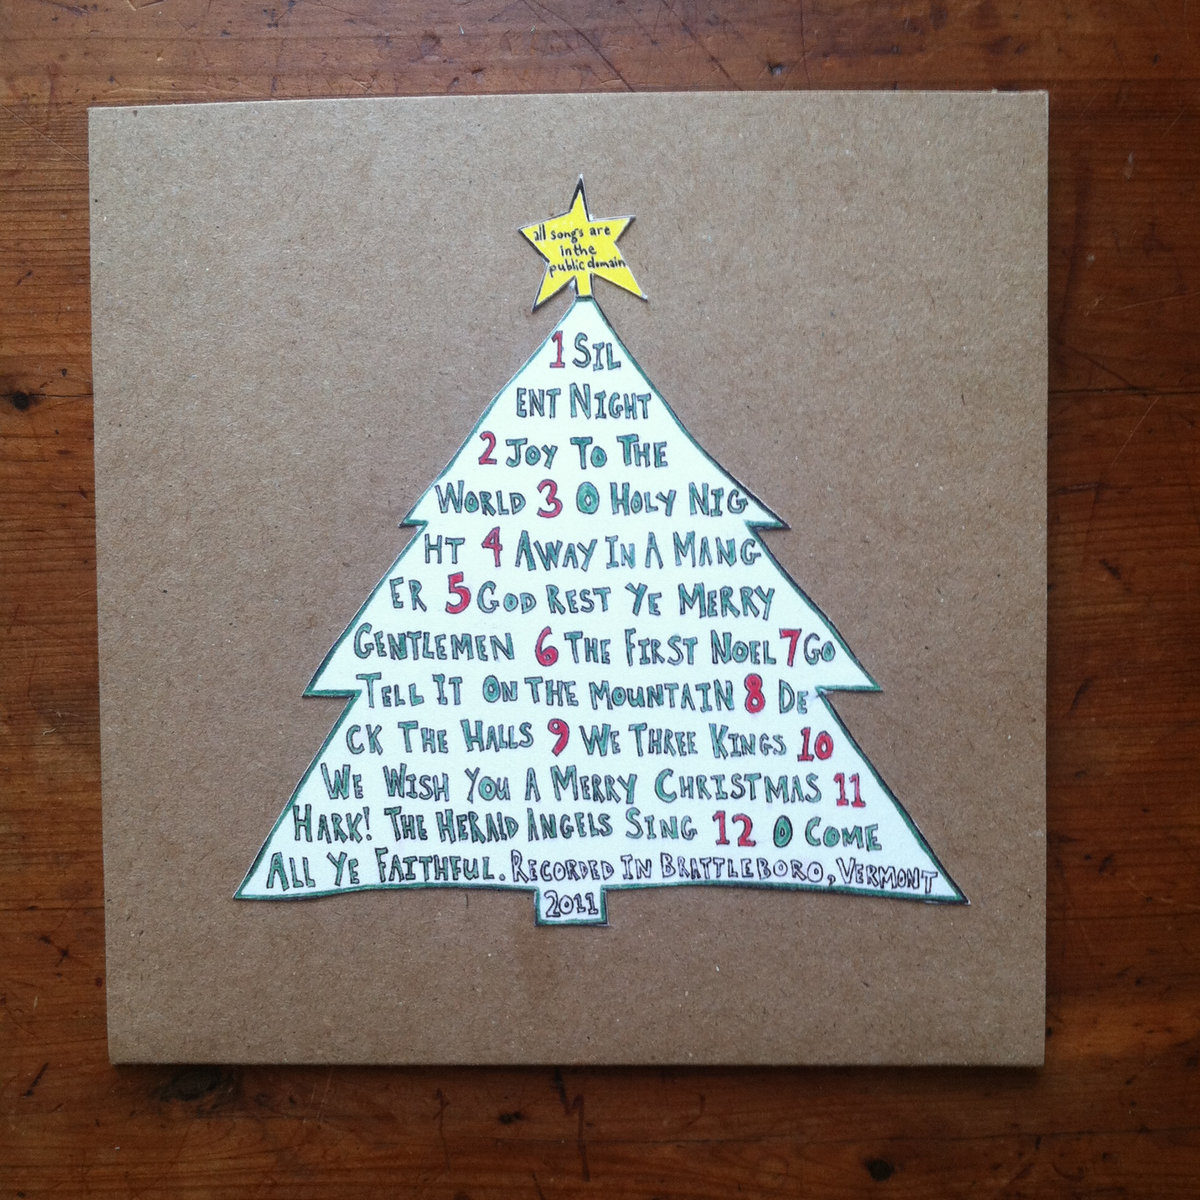 all songs are
in the
public domain
1 SIL
ENT NIGHT
2 JOY TO THE
WORLD 3 O HOLY NIG
HT 4 AWAY IN A MANG
ER 5 GOD REST YE MERRY
GENTLEMEN 6 THE FIRST NOEL 7 GO
TELL IT ON THE MOUNTAIN 8 DE
CK THE HALLS 9 WE THREE KINGS 10
WE WISH YOU A MERRY CHRISTMAS 11
HARK! THE HERALD ANGELS SING 12 O COME
ALL YE FAITHFUL. RECORDED IN BRATTLEBORO, VERMONT
2011